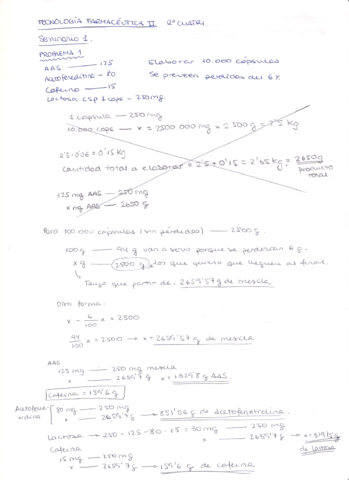 TECNOLOGÍA FARMACÉUTICA II 2º CUATRI
Seminario 1.
PROBLEMA 1
AAS — 125 Elaborar 10.000 cápsulas
Acetofenetidina — 80 Se preveen pérdidas del 6%
Cafeína — 15
Lactosa csp 1 caps - 250mg.
1 cápsula — 250 mg
10.000 caps — x = 2500 000 mg = 2.500 g = 2'5 Kg
2'5·0'06 = 0'15 Kg
Cantidad total a elaborar = 2'5 + 0'15 = 2'65 Kg = 2650g producto total
125 mg AAS — 250 mg
x mg AAS — 2650 g
Para 100.000 cápsulas (sin pérdidas) — 2500 g.
100g — 94 g van a servir porque se perderán 6 g.
x g — 2500 g, los que quiero que lleguen al final.
Tengo que partir de: 2659'57 g de mezcla
Otra forma:
x - 6/100 x = 2500
94/100 x = 2500 → x = 2659'57 g de mezcla
AAS
125 mg — 250 mg mezcla
x — 2659'7 g x = 1329'8 g AAS.
Cafeína = 159'6 g
Acetofenetidina 80 mg — 250 mg
x — 2659'7 g → 851'06 g de acetofenetidina.
Lactosa → 250 - 125 - 80 - 15 = 30 mg — 250 mg
x — 2659'7 g → x = 319'15 g de lactosa
Cafeína
15 mg — 250 mg
x — 2659'7 g → 159'6 g de cafeína